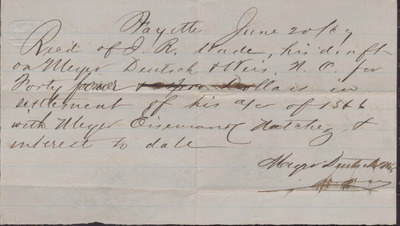 Fayette June 20/69
Recd of J. R. Wade, his draft
on Meyer Deutsch & Weis. N. O. for
Forty four Dollars in
settlement of his a/c of 1866
with Meyer Eiseman Natchez, &
interest to date
Meyer Deutsch & Weis